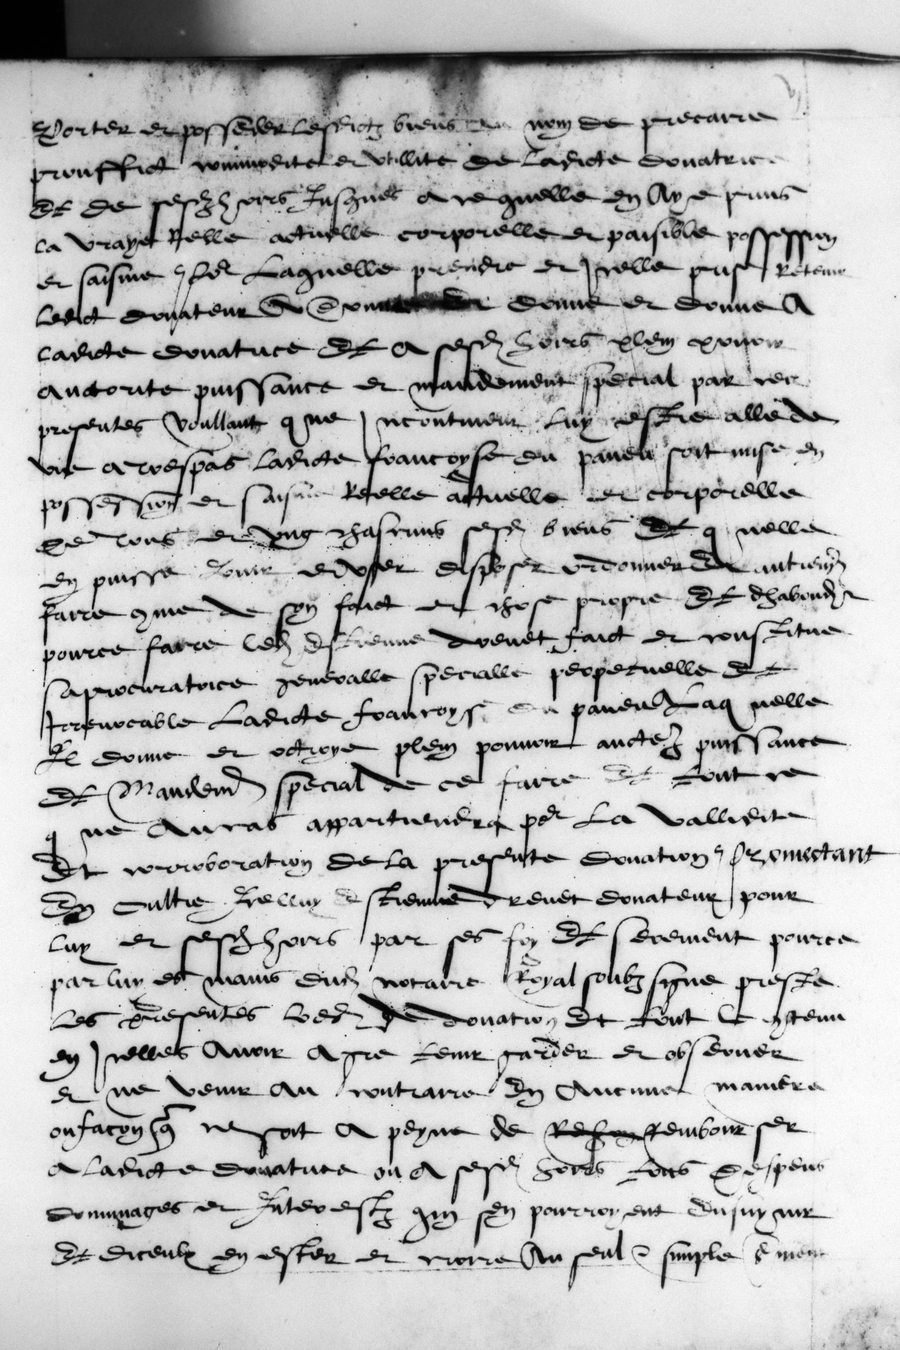 Porter et posseder lesdictz biens au nom de precaire
prouffict commodite et utillite de ladicte donatrice
Et de sesd hoirs Jusques a ce quelle en Aye prins
La vraye Reelle actuelle corporelle et paisible possession
et saisine Laquelle prendre et Icelle prise Retenir
Ledict donateur donne et donne A
Ladicte donatrice Et a sesd hoirs plein povoir
auctorite puissance et mandement special par ces
presentes voullant que Incontinent luy estre alle de
vie a trespas ladicte francoyse du paneu soit mise en
possession et saisine Reelle actuelle et corporelle
De tous et ung chascuns sesd biens Et quelle
en puisse Jouir et user disposer ordonner et autrement
faire come de son faict et chose propre Et dhabondant
pource faire led estienne drevet faict et constitue
sa procuratrice generalle specialle perpetuelle Et
Irrevocable Ladicte francoyse du paneu Laquelle
Il donne et octroye plein pouvoir auctez puissance
Et Mandemt special de ce faire Et tout ce
que Au cas appartiendra pour La vallidite
Et corroboration de la presente donation promectant
En oultre Icelluy estienne drevet donateur pour
luy et sesd hoirs par ses foy Et serement pource
par luy es mains dud notaire Royal soubz signe preste
Les presentes Led de donation Et tout le contenu
en Icelles Avoir Agre tenir garder et observer
et ne venir au contraire En Aucune maniere
ou facon que ce soit A peyne de rembourser
a ladicte donatrice ou A sesd hoirs tous Despens
dommages et Interestz qui sen pourroyent ensuyvir
Et diceulx en ester et croire Au seul et simple serment